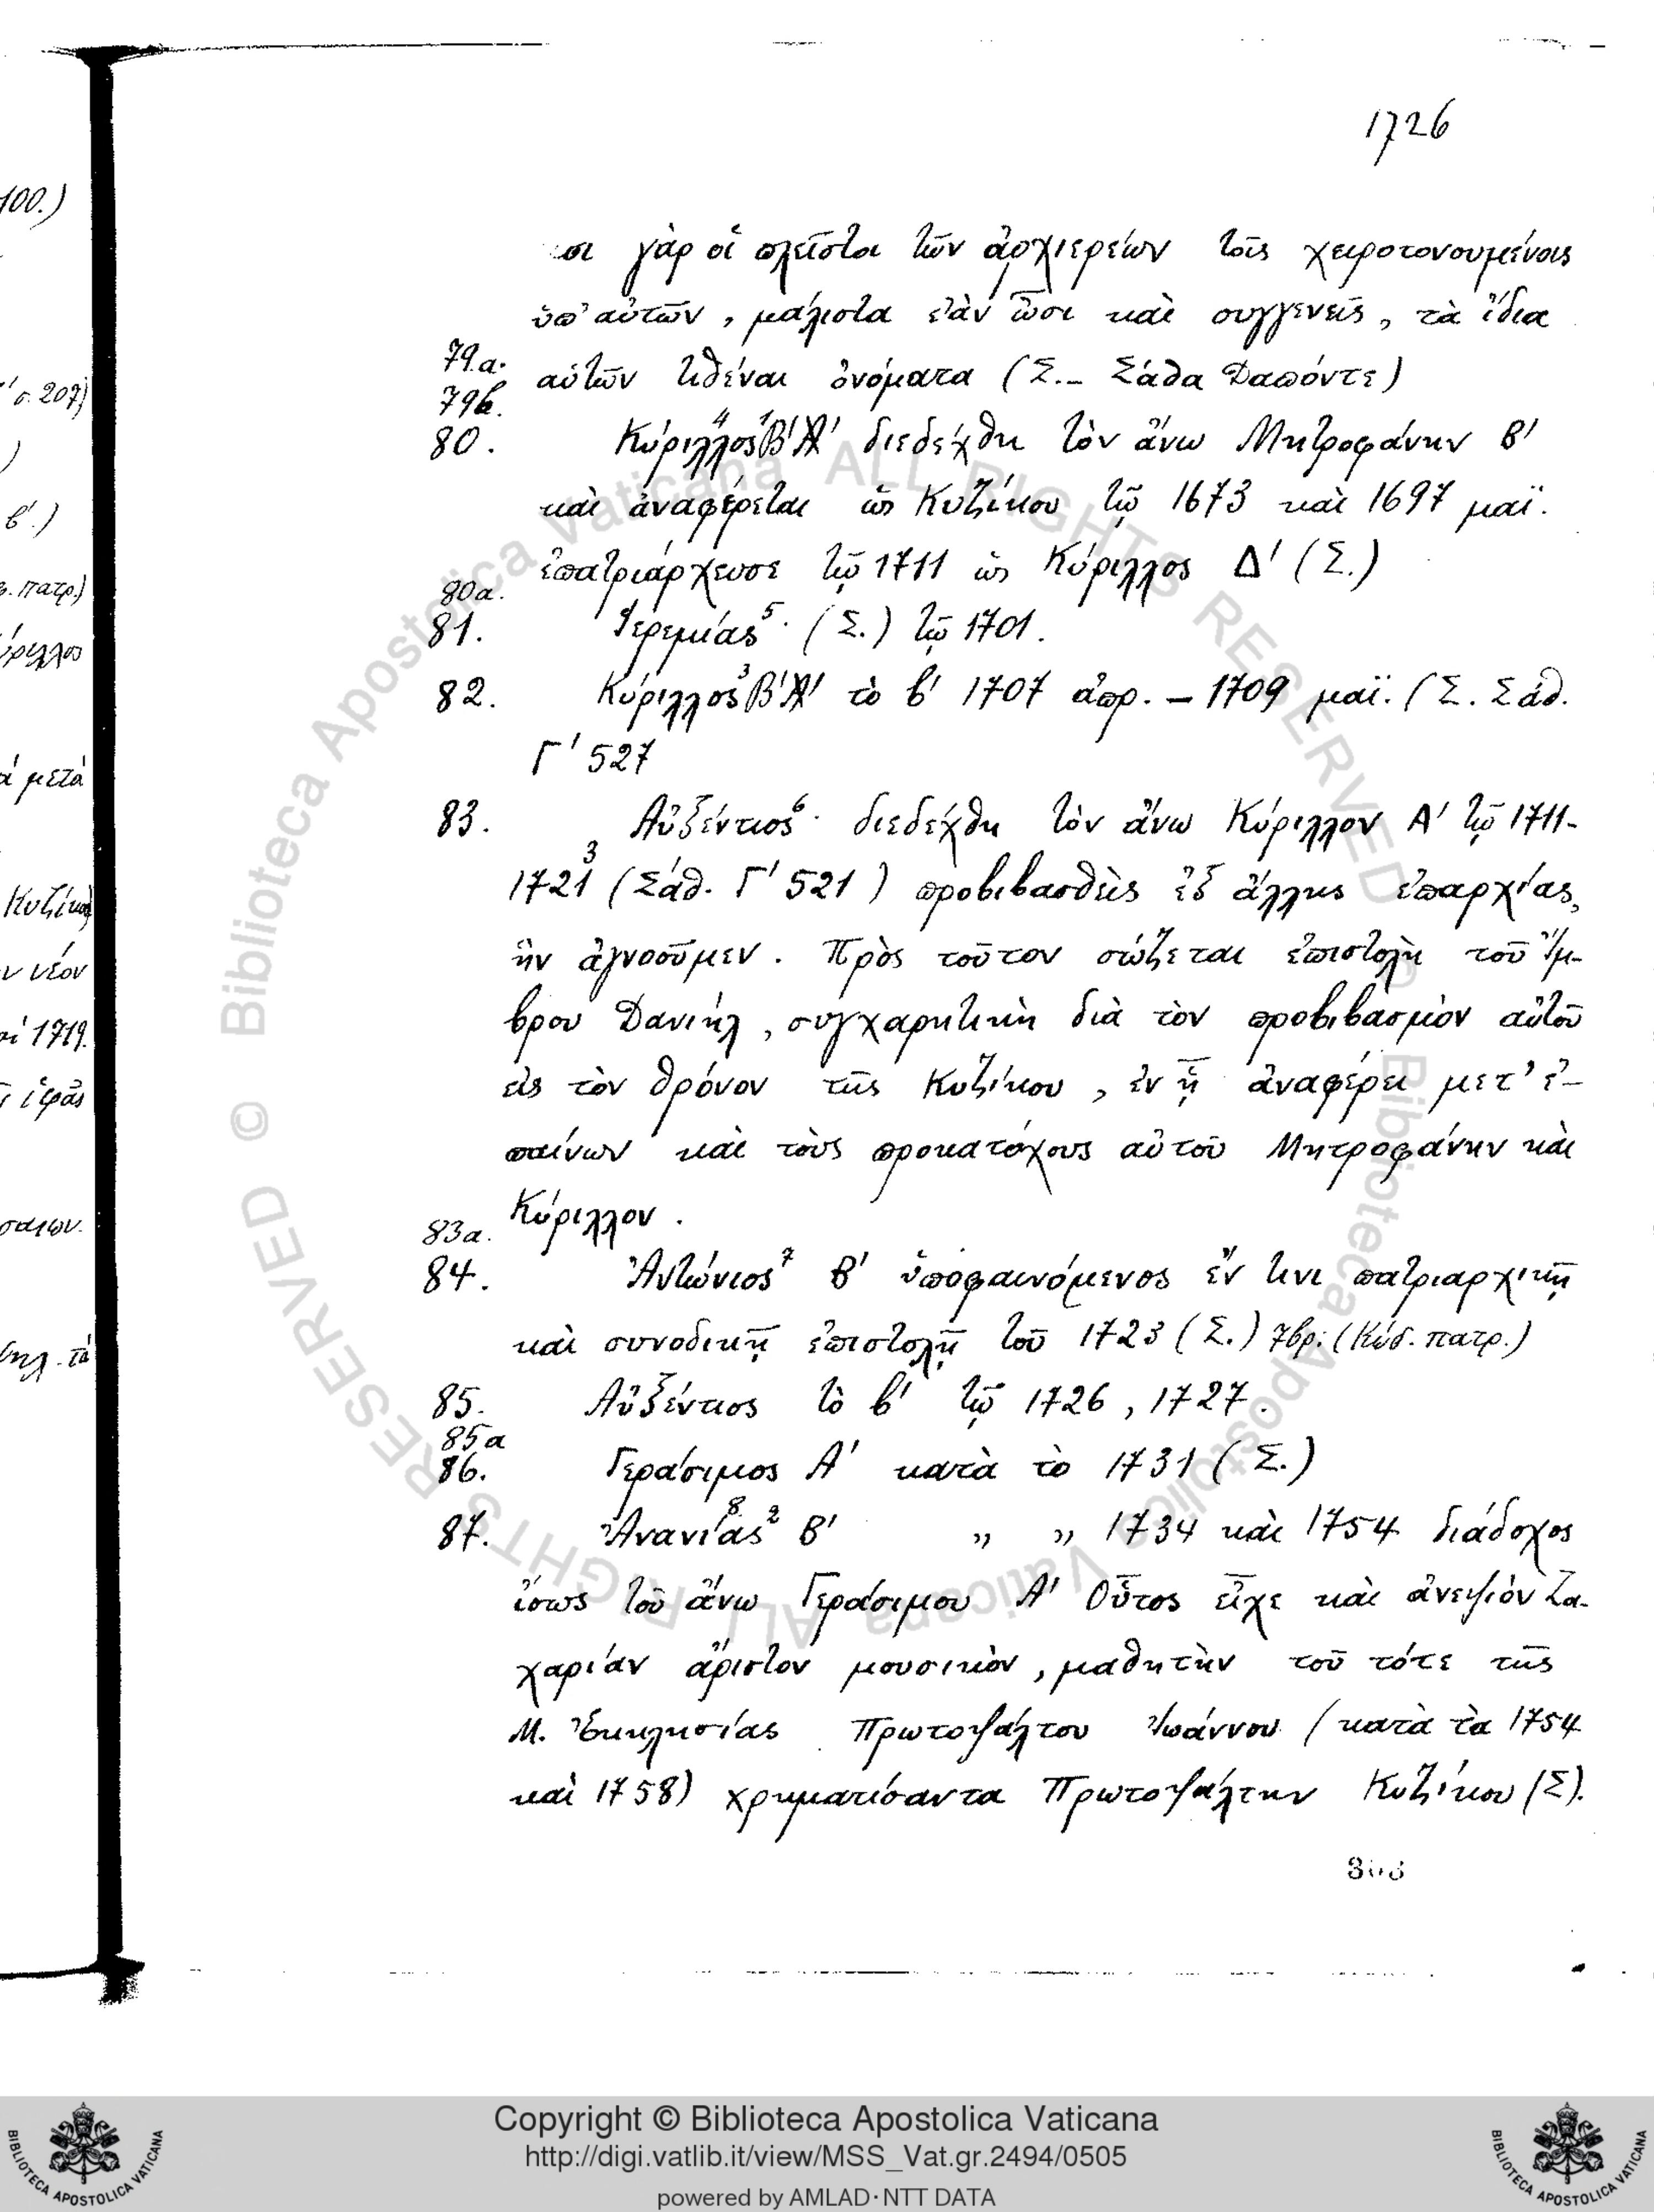 1726
σι γὰρ οἱ πλεῖστοι τῶν ἀρχιερέων τοῖς χειροτονουμένοις
ὑπ' αὐτῶν, μάλιστα ἐὰν ὦσι καὶ συγγενεῖς, τὰ ἴδια
79.α. αὑτῶν τιθέναι ὀνόματα (Σ.- Σάθα Δαπόντε)
79β.
80. Κύριλλος⁴ Β' Α' διεδέχθη τὸν ἄνω Μητροφάνην Β'
καὶ ἀναφέρεται ὡς Κυζίκου τῷ 1673 καὶ 1697 μαΐ.
ἐπατριάρχευσε τῷ 1711 ὡς Κύριλλος Δ' (Σ.)
80α.
81. Ἱερεμίας⁵· (Σ.) τῷ 1701.
82. Κύριλλος³ Β' Α' τὸ β' 1707 ἀπρ. – 1709 μαΐ. (Σ. Σάθ.
Γ' 527
83. Αὐξέντιος⁶· διεδέχθη τὸν ἄνω Κύριλλον Α' τῷ 1711-
1721³ (Σάθ. Γ' 521) προβιβασθεὶς ἐξ ἄλλης ἐπαρχίας,
ἣν ἀγνοοῦμεν. Πρὸς τοῦτον σώζεται ἐπιστολὴ τοῦ Ἴμ-
βρου Δανιήλ, συγχαρητικὴ διὰ τὸν προβιβασμὸν αὐτοῦ
εἰς τὸν θρόνον τῆς Κυζίκου, ἐν ᾗ ἀναφέρει μετ' ἐ-
παίνων καὶ τοὺς προκατόχους αὐτοῦ Μητροφάνην καὶ
Κύριλλον.
83α.
84. Ἀντώνιος⁷ Β' ὑποφαινόμενος ἔν τινι πατριαρχικῇ
καὶ συνοδικῇ ἐπιστολῇ τοῦ 1723 (Σ.) 7βρ. (Κώδ. πατρ.)
85. Αὐξέντιος τὸ β' τῷ 1726, 1727.
85α
86. Γεράσιμος Α' κατὰ τὸ 1731 (Σ.)
87. Ἀνανίας⁸ ² Β' „ „ 1734 καὶ 1754 διάδοχος
ἴσως τοῦ ἄνω Γερασίμου Α' Οὗτος εἶχε καὶ ἀνεψιὸν Ζα-
χαρίαν ἄριστον μουσικὸν, μαθητὴν τοῦ τότε τῆς
Μ. Ἐκκλησίας Πρωτοψάλτου Ἰωάννου (κατὰ τὰ 1754
καὶ 1758) χρηματίσαντα Πρωτοψάλτην Κυζίκου (Σ).
100.)
σ. 207)
)
β'.)
πατρ.)
ύριλλος
ά μετά
Κυζίκου
ν νέον
1719.
ἱερᾶς
© Biblioteca Apostolica Vaticana ALL RIGHTS RESERVED
© Biblioteca Apostolica Vaticana ALL RIGHTS RESERVED
Copyright © Biblioteca Apostolica Vaticana
http://digi.vatlib.it/view/MSS_Vat.gr.2494/0505
powered by AMLAD·NTT DATA
BIBLIOTECA APOSTOLICA VATICANA
BIBLIOTECA APOSTOLICA VATICANA